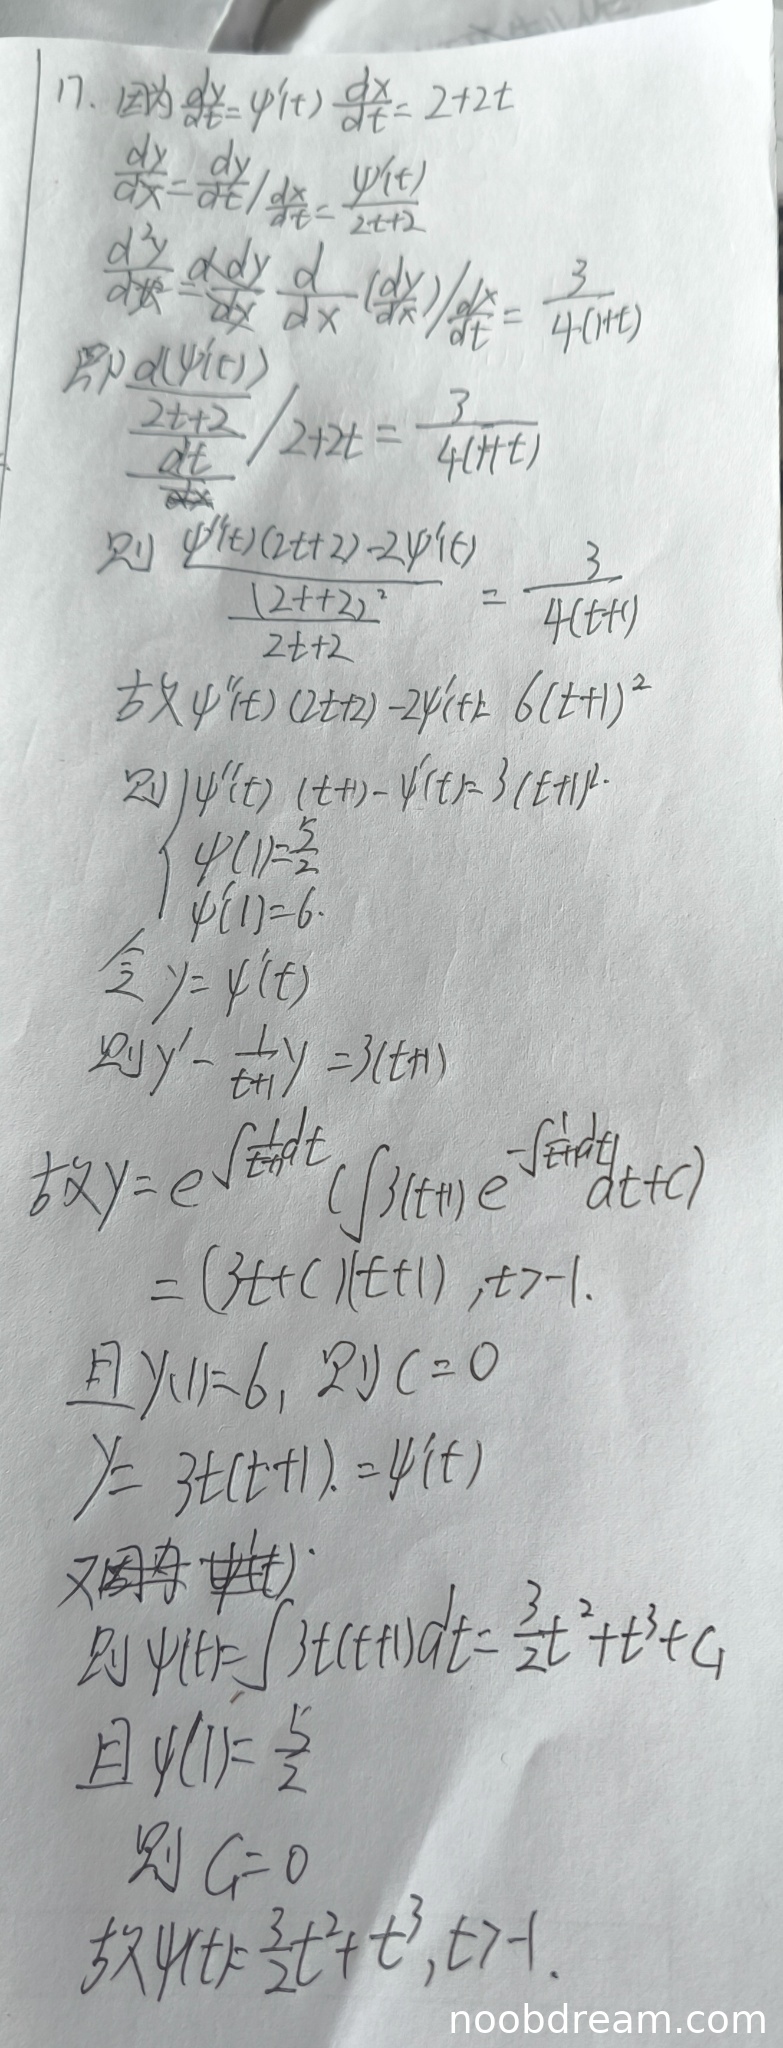 17. 因为 dy/dt = ψ'(t) dx/dt = 2+2t
dy/dx = dy/dt / dx/dt = ψ'(t)/(2t+2)
d²y/dx² = d/dx (dy/dx) / dx/dt = 3/(4(1+t))
即 d(ψ'(t)/(2t+2))/dt / 2+2t = 3/(4(1+t))
则 (ψ''(t)(2t+2)-2ψ'(t))/(2t+2)²/(2t+2) = 3/(4(t+1))
故 ψ''(t)(2t+2)-2ψ'(t) = 6(t+1)²
则 { ψ''(t)(t+1)-ψ'(t) = 3(t+1)².
ψ(1)=5/2
ψ'(1)=6.
令 y=ψ'(t)
则 y' - 1/(t+1) y = 3(t+1)
故 y = e^(∫1/(t+1)dt) (∫3(t+1) e^(-∫1/(t+1)dt) dt+C)
= (3t+C)(t+1), t>-1.
且 y(1)=6, 则 C=0
y= 3t(t+1). = ψ'(t)
又
则 ψ(t)=∫3t(t+1)dt = 3/2 t²+t³+C₁
且 ψ(1)= 5/2
则 C₁=0
故 ψ(t)= 3/2 t²+t³, t>-1.
noobdream.com